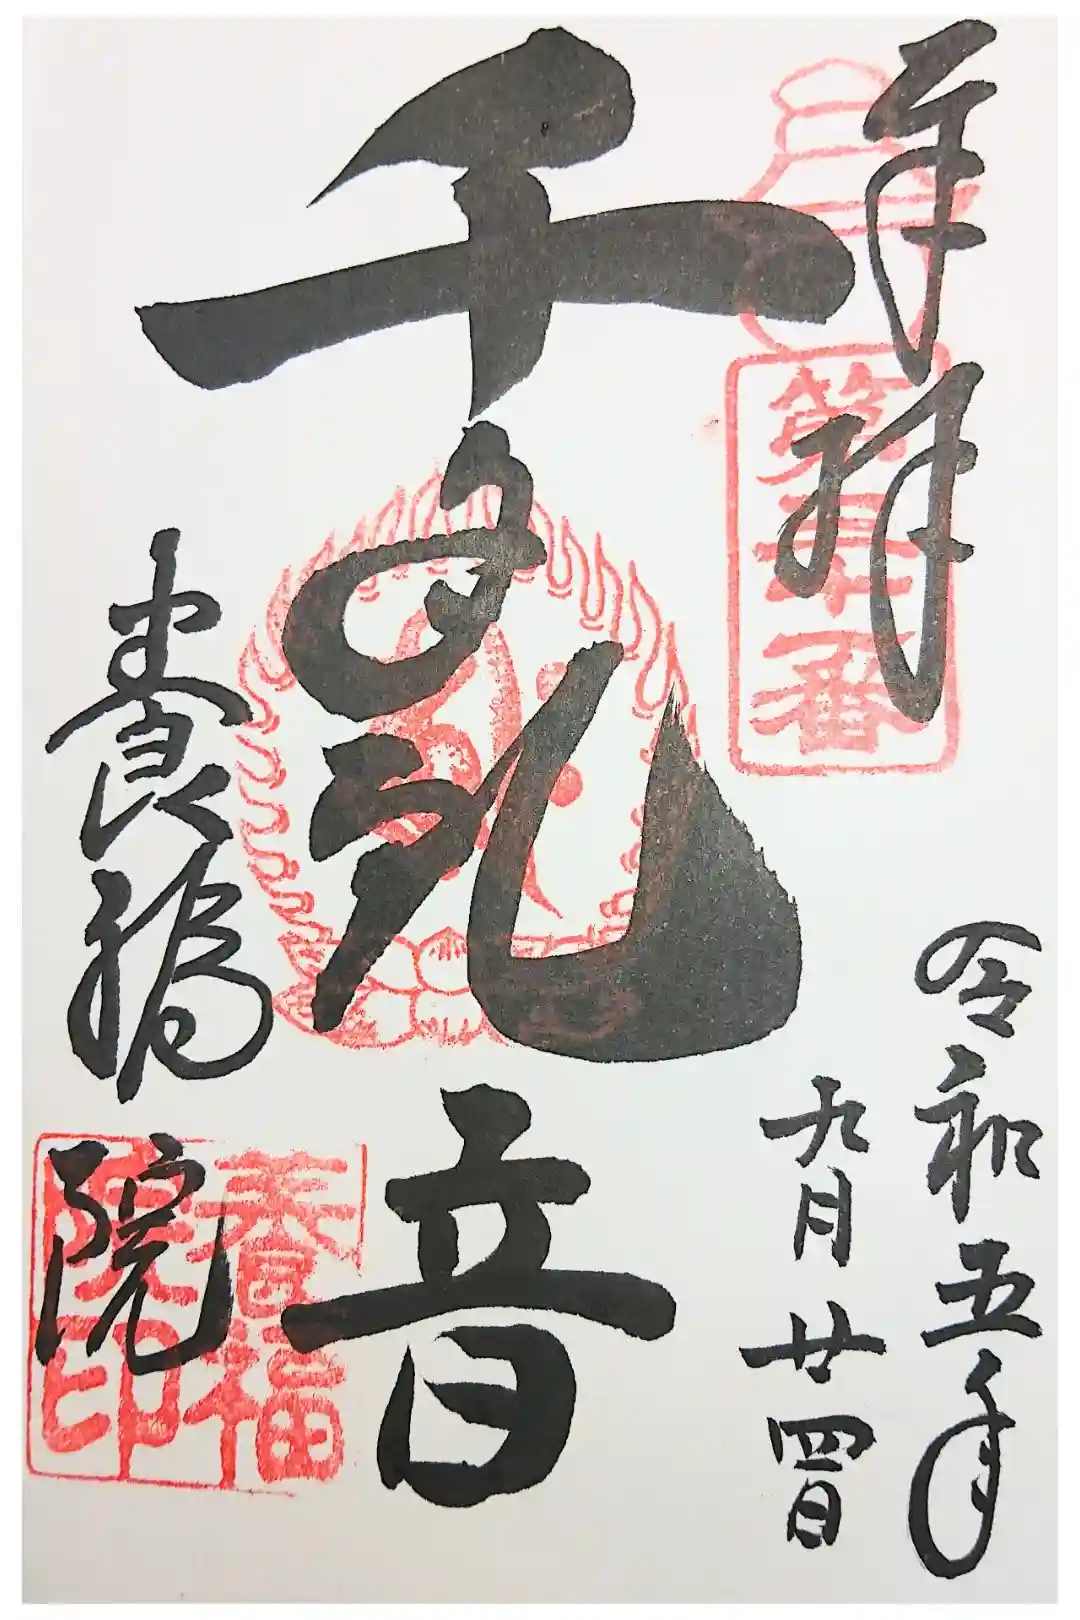 奉拝
第
番
令和五年
九月廿四日
千手観音
養福院
養福
院印